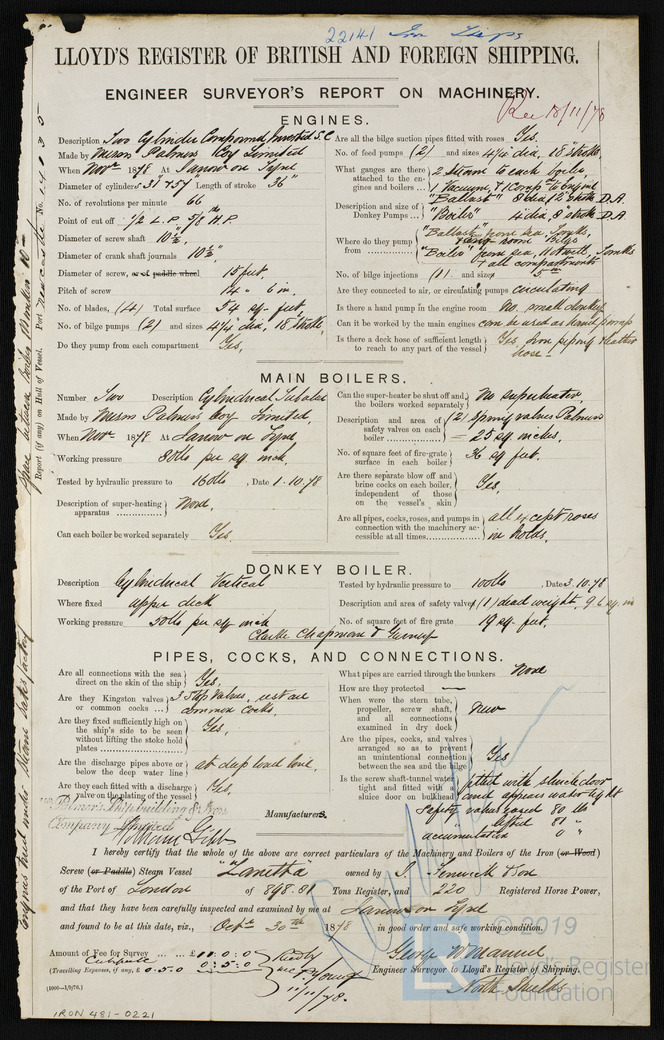 22141 Iron Ships
LLOYD'S REGISTER OF BRITISH AND FOREIGN SHIPPING.
ENGINEER SURVEYOR'S REPORT ON MACHINERY.
Rec 18/11/78
ENGINES.
Description Two Cylinder Compound Inverted S.C
Made by Messrs Palmers Coy Limited
When Novr 1878 At Jarrow on Tyne
Diameter of cylinders 31" & 57" Length of stroke 36"
No. of revolutions per minute 66
Point of cut off 1/2 L.P. 5/8 H.P.
Diameter of screw shaft 10 1/2"
Diameter of crank shaft journals 10 1/2"
Diameter of screw, or of paddle wheel 15 feet
Pitch of screw 14 " 6 in.
No. of blades, (4) Total surface 54 sq. feet
No. of bilge pumps (2) and sizes 4 1/4 dia, 18" stroke
Do they pump from each compartment Yes.
Are all the bilge suction pipes fitted with roses Yes.
No. of feed pumps (2) and sizes 4 1/4 dia, 18" stroke
What gauges are there attached to the engines and boilers ... 2 Steam to each boiler, 1 Vacuum, & 1 Comp to Engine
Description and size of Donkey Pumps ... "Ballast" 8 dia, 12" stroke D.A.
"Boiler" 4 dia, 8" stroke D.A
Where do they pump from "Ballast" from sea, Tanks, & Engine room Bilge
"Boiler" from sea, Hotwell, Tanks & all compartments
No. of bilge injections (1) and sizes 5
Are they connected to air, or circulating pumps circulating
Is there a hand pump in the engine room No. small donkey
Can it be worked by the main engines can be used as hand pump
Is there a deck hose of sufficient length to reach to any part of the vessel Yes, Iron piping & leather hose.
MAIN BOILERS.
Number Two Description Cylindrical Tubular
Made by Messrs Palmers Coy Limited.
When Novr 1878 At Jarrow on Tyne
Working pressure 80lbs per sq inch
Tested by hydraulic pressure to 160lbs, Date 1.10.78
Description of super-heating apparatus None.
Can each boiler be worked separately Yes.
Can the super-heater be shut off and the boilers worked separately No superheater.
Description and area of safety valves on each boiler (2) Spring valves Palmers = 25 sq inches.
No. of square feet of fire-grate surface in each boiler 36 sq feet.
Are there separate blow off and brine cocks on each boiler, independent of those on the vessel's skin Yes.
Are all pipes, cocks, roses, and pumps in connection with the machinery accessible at all times all except roses in holds.
DONKEY BOILER.
Description Cylindrical Vertical
Where fixed upper deck
Working pressure 50lbs per sq inch
Clarke Chapman & Gurney
Tested by hydraulic pressure to 100lbs, Date 3.10.78
Description and area of safety valves (1) dead weight, 9.6 sq in
No. of square feet of fire grate 19 sq. feet.
PIPES, COCKS, AND CONNECTIONS.
Are all connections with the sea direct on the skin of the ship Yes.
Are they Kingston valves or common cocks ... 3 Stop Valves, rest are common cocks.
Are they fixed sufficiently high on the ship's side to be seen without lifting the stoke hold plates Yes.
Are the discharge pipes above or below the deep water line at deep load line.
Are they each fitted with a discharge valve on the plating of the vessel Yes.
What pipes are carried through the bunkers None
How are they protected —
When were the stern tube, propeller, screw shaft, and all connections examined in dry dock New
Are the pipes, cocks, and valves arranged so as to prevent an unintentional connection between the sea and the bilges Yes
Is the screw shaft-tunnel water tight and fitted with a sluice door on bulkhead fitted with sluice door and appears water tight
Safety valves eased 80 lbs
lifted 81 "
accumulation 0 "
Palmer's Shipbuilding & Iron Company Limited
Manufacturers.
William Gibb
I hereby certify that the whole of the above are correct particulars of the Machinery and Boilers of the Iron (or Wood)
Screw (or Paddle) Steam Vessel "Zanetta" owned by J. Fenwick & Son
of the Port of London of 898.81 Tons Register, and 220 Registered Horse Power,
and that they have been carefully inspected and examined by me at Jarrow on Tyne
and found to be at this date, viz., Octr 30th 1878 in good order and safe working condition.
Amount of Fee for Survey ... ... £11:0:0
(Travelling Expenses, if any, £0.5.0 0:5:0
P. Young
11/11/78.
Engineer Surveyor to Lloyd's Register of Shipping.
North Shields
IRON 481-0221
© 2019
Lloyd's Register
Foundation
Report (if any) on Hull of Vessel. Port Newcastle No.